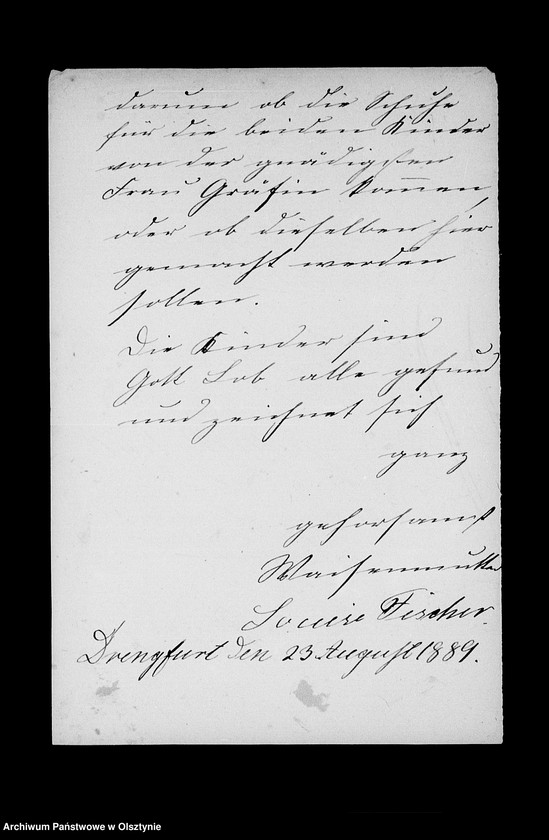 darum ob die Schuhe
für die beiden Kinder
von der gnädigsten
Frau Gräfin kommen,
oder ob dieselben hier
gemacht werden
sollen.
Die Kinder sind
Gott Lob alle gesund
und zeichnet sich
ganz
gehorsamst
Waisenmutter
Louise Fischer.
Drengfurt den 23 August 1889.
Archiwum Państwowe w Olsztynie